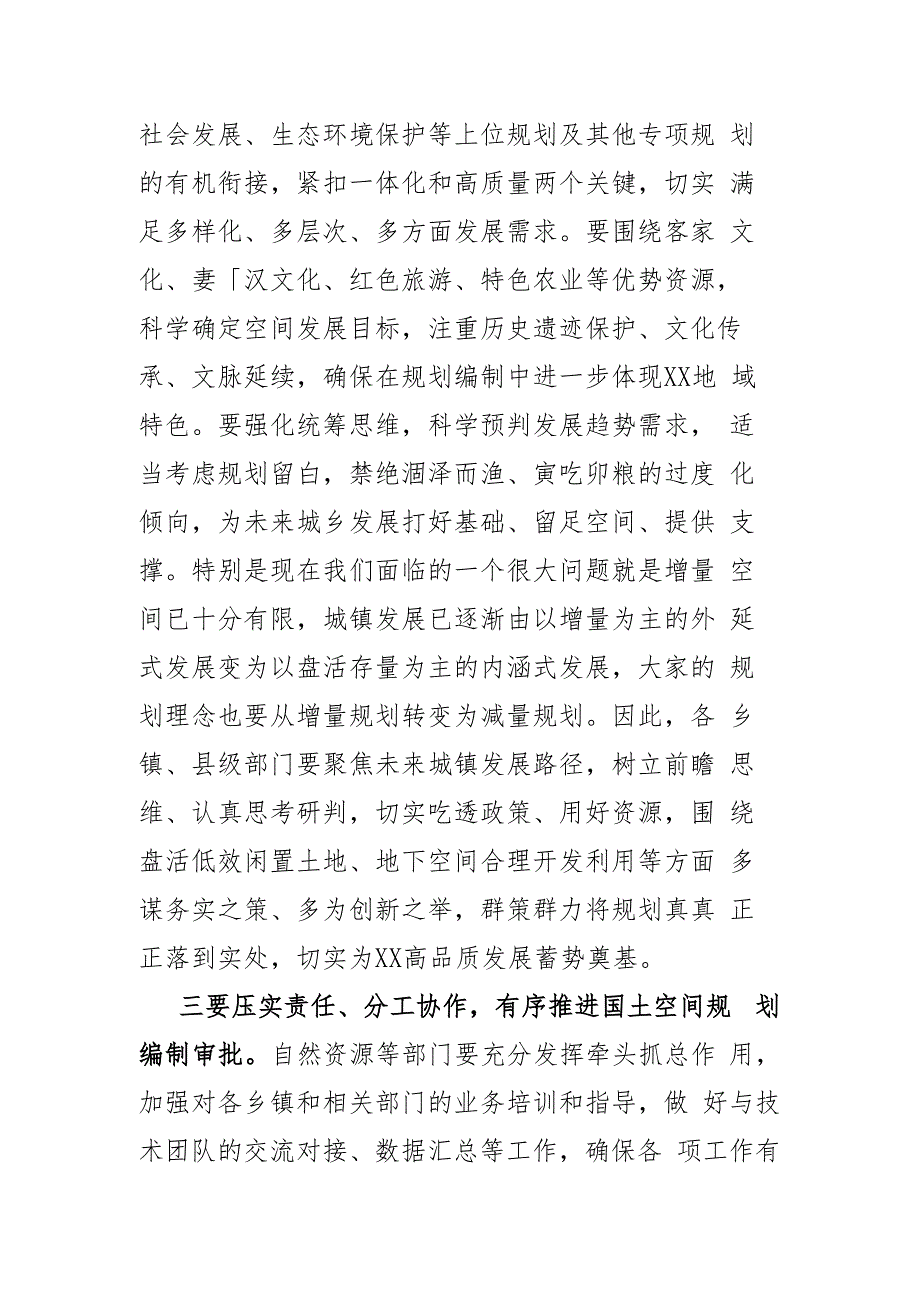 社会发展、生态环境保护等上位规划及其他专项规 划
的有机衔接，紧扣一体化和高质量两个关键，切实 满
足多样化、多层次、多方面发展需求。要围绕客家 文
化、妻「汉文化、红色旅游、特色农业等优势资源，
科学确定空间发展目标，注重历史遗迹保护、文化传
承、文脉延续，确保在规划编制中进一步体现XX地 域
特色。要强化统筹思维，科学预判发展趋势需求， 适
当考虑规划留白，禁绝涸泽而渔、寅吃卯粮的过度 化
倾向，为未来城乡发展打好基础、留足空间、提供 支
撑。特别是现在我们面临的一个很大问题就是增量 空
间已十分有限，城镇发展已逐渐由以增量为主的外 延
式发展变为以盘活存量为主的内涵式发展，大家的 规
划理念也要从增量规划转变为减量规划。因此，各 乡
镇、县级部门要聚焦未来城镇发展路径，树立前瞻 思
维、认真思考研判，切实吃透政策、用好资源，围 绕
盘活低效闲置土地、地下空间合理开发利用等方面 多
谋务实之策、多为创新之举，群策群力将规划真真 正
正落到实处，切实为XX高品质发展蓄势奠基。
三要压实责任、分工协作，有序推进国土空间规 划
编制审批。自然资源等部门要充分发挥牵头抓总作 用，
加强对各乡镇和相关部门的业务培训和指导，做 好与技
术团队的交流对接、数据汇总等工作，确保各 项工作有